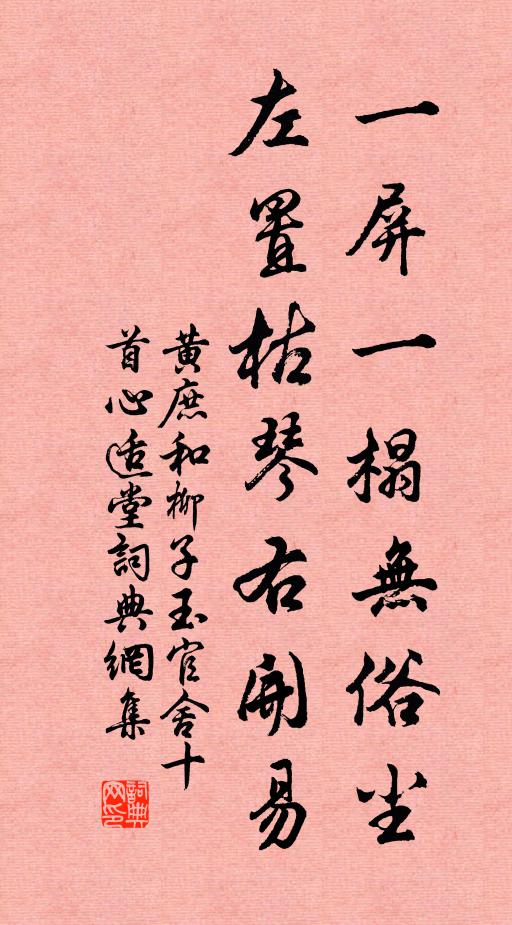 一屏一榻無俗尘
左置枯琴右開易
黄庶和柳子玉官舍十
首心适堂詞典網集
詞典网印